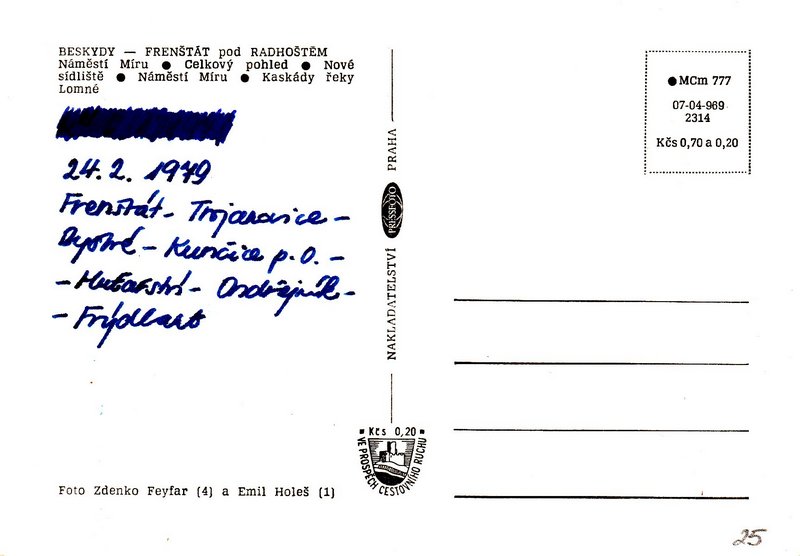 BESKYDY — FRENŠTÁT pod RADHOŠTĚM
Náměstí Míru ● Celkový pohled ● Nové
sídliště ● Náměstí Míru ● Kaskády řeky
Lomné
24.2. 1979
Frenštát - Trojanovice -
Bystré - Kunčice p.O. -
- Huťařství - Ondřejník -
- Frýdlant
Foto Zdenko Feyfar (4) a Emil Holeš (1)
NAKLADATELSTVÍ PRESSFOTO PRAHA
■ Kčs 0,20 ■
VE PROSPĚCH CESTOVNÍHO RUCHU
● MCm 777
07-04-969
2314
Kčs 0,70 a 0,20
25